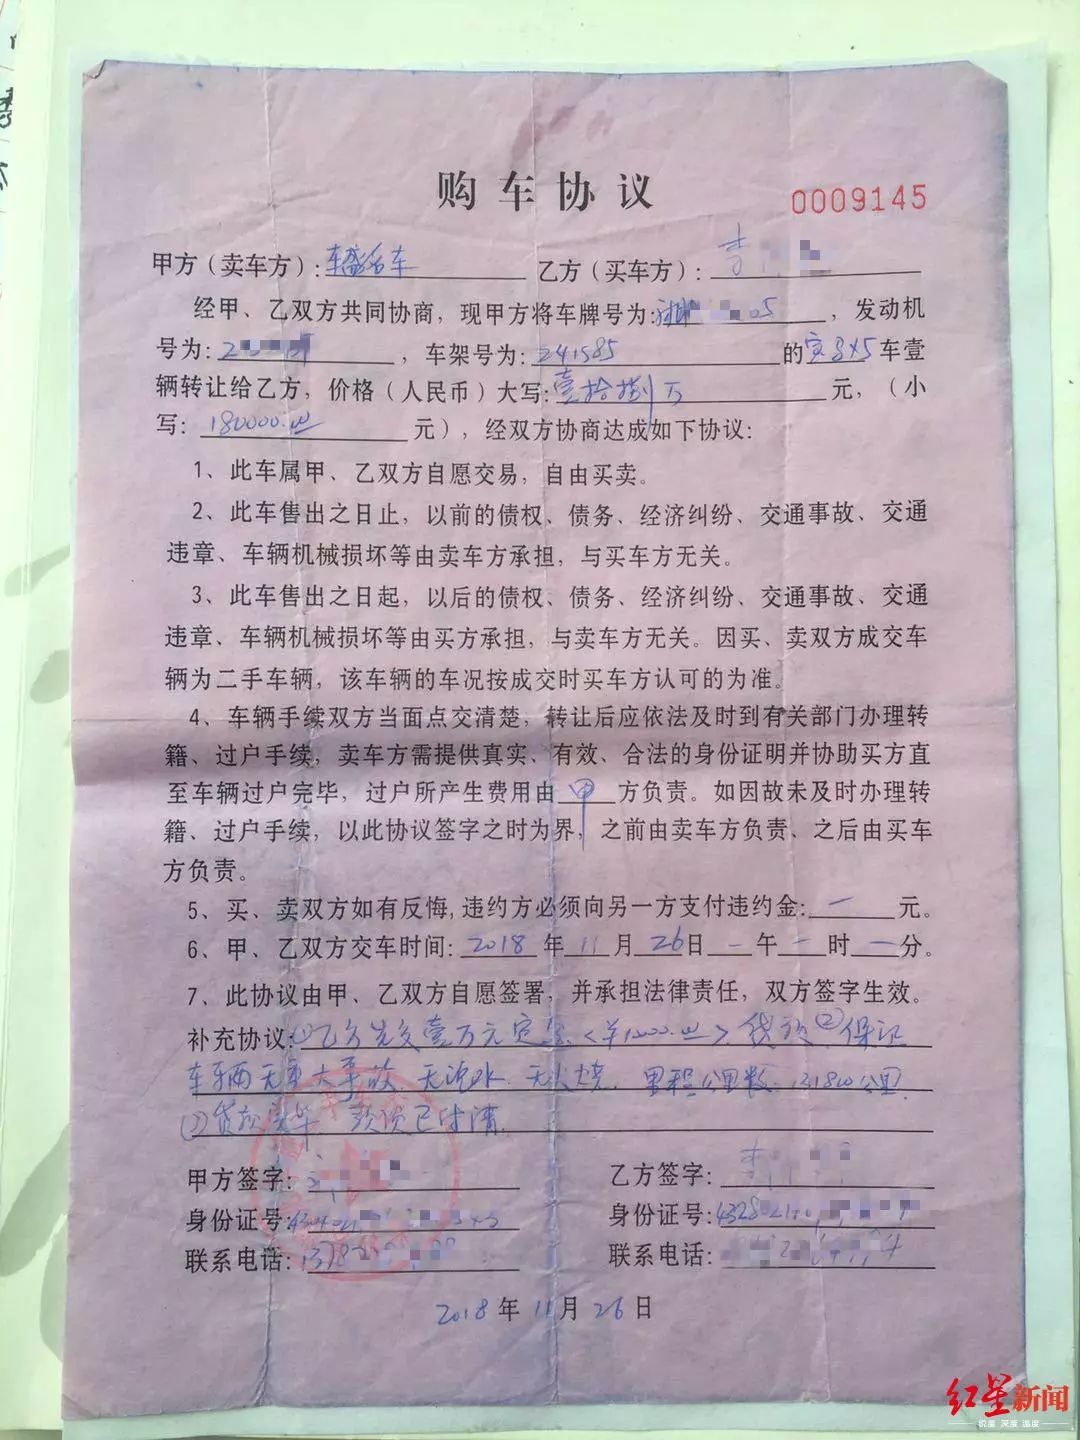 购车协议
0009145
甲方（卖车方）：车盛名车 乙方（买车方）：李
经甲、乙双方共同协商，现甲方将车牌号为：湘 05，发动机
号为：2 ，车架号为：241585 的宝马X5车壹
辆转让给乙方，价格（人民币）大写：壹拾捌万 元，（小
写：180000.00 元），经双方协商达成如下协议：
1、此车属甲、乙双方自愿交易，自由买卖。
2、此车售出之日止，以前的债权、债务、经济纠纷、交通事故、交通
违章、车辆机械损坏等由卖车方承担，与买车方无关。
3、此车售出之日起，以后的债权、债务、经济纠纷、交通事故、交通
违章、车辆机械损坏等由买方承担，与卖车方无关。因买、卖双方成交车
辆为二手车辆，该车辆的车况按成交时买车方认可的为准。
4、车辆手续双方当面点交清楚，转让后应依法及时到有关部门办理转
籍、过户手续，卖车方需提供真实、有效、合法的身份证明并协助买方直
至车辆过户完毕，过户所产生费用由 甲 方负责。如因故未及时办理转
籍、过户手续，以此协议签字之时为界，之前由卖车方负责、之后由买车
方负责。
5、买、卖双方如有反悔，违约方必须向另一方支付违约金：一 元。
6、甲、乙双方交车时间：2018 年 11 月 26 日 一 午 一 时 一 分。
7、此协议由甲、乙双方自愿签署，并承担法律责任，双方签字生效。
补充协议：①乙方先交壹万元定金 ②保证
车辆无重大事故、无泡水、无火烧，里程公里数，131800公里
款项已付清。
甲方签字： 乙方签字：李
身份证号： 身份证号：
联系电话： 联系电话：
2018 年 11 月 26 日
红星新闻
锐度 深度 温度